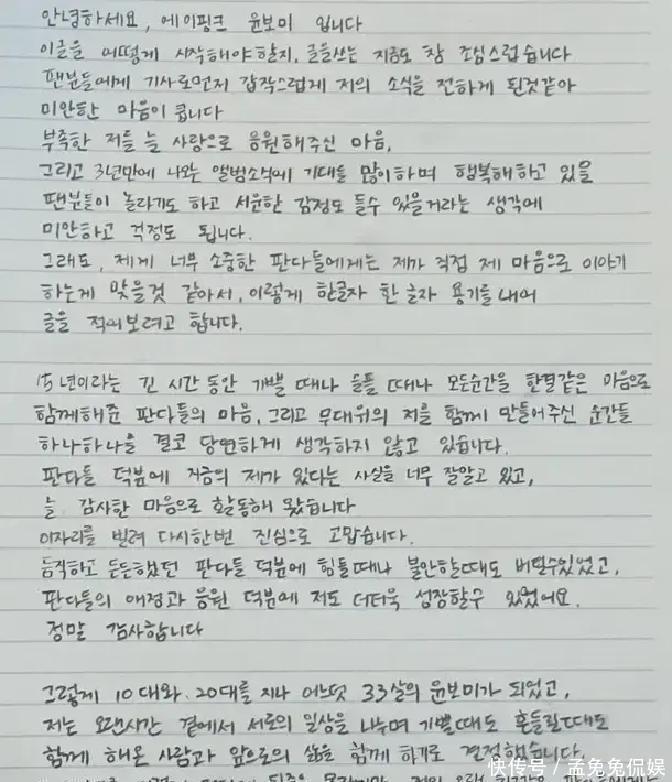 안녕하세요, 에이핑크 윤보미 입니다
이글을 어떻게 시작해야할지, 글을쓰는 지금도 참 조심스럽습니다
팬분들에게 기사로먼저 갑작스럽게 저의 소식을 전하게 된것같아
미안한 마음이 큽니다
부족한 저를 늘 사랑으로 응원해주신 마음,
그리고 3년만에 나오는 앨범소식에 기대를 많이하며 행복해하고 있을
팬분들이 놀라기도 하고 서운한 감정도 들수 있을거라는 생각에
미안하고 걱정도 됩니다.
그래도, 제게 너무 소중한 판다들에게는 제가 직접 제 마음으로 이야기
하는게 맞을것 같아서, 이렇게 한글자 한 글자 용기를 내어
글을 적어보려고 합니다.
15년이라는 긴 시간 동안 기쁠 때나 슬플 때나 모든순간을 한결같은 마음으로
함께해준 판다들의 마음, 그리고 무대위의 저를 함께 만들어주신 순간들
하나하나를 결코 당연하게 생각하지 않고 있습니다.
판다들 덕분에 지금의 제가 있다는 사실을 너무 잘알고 있고,
늘 감사한 마음으로 활동해 왔습니다
이자리를 빌려 다시한번 진심으로 고맙습니다.
듬직하고 든든했던 판다들 덕분에 힘들때나 불안할때도 버틸수있었고,
판다들의 애정과 응원 덕분에 저도 더더욱 성장할수 있었어요.
정말 감사합니다
그렇게 10대와 20대를 지나 어느덧 33살의 윤보미가 되었고,
저는 오랜시간 곁에서 서로의 일상을 나누며 기쁠때도 흔들릴때도
함께 해온 사람과 앞으로의 삶을 함께 하기로 결정했습니다.
快传号 / 孟兔兔侃娱